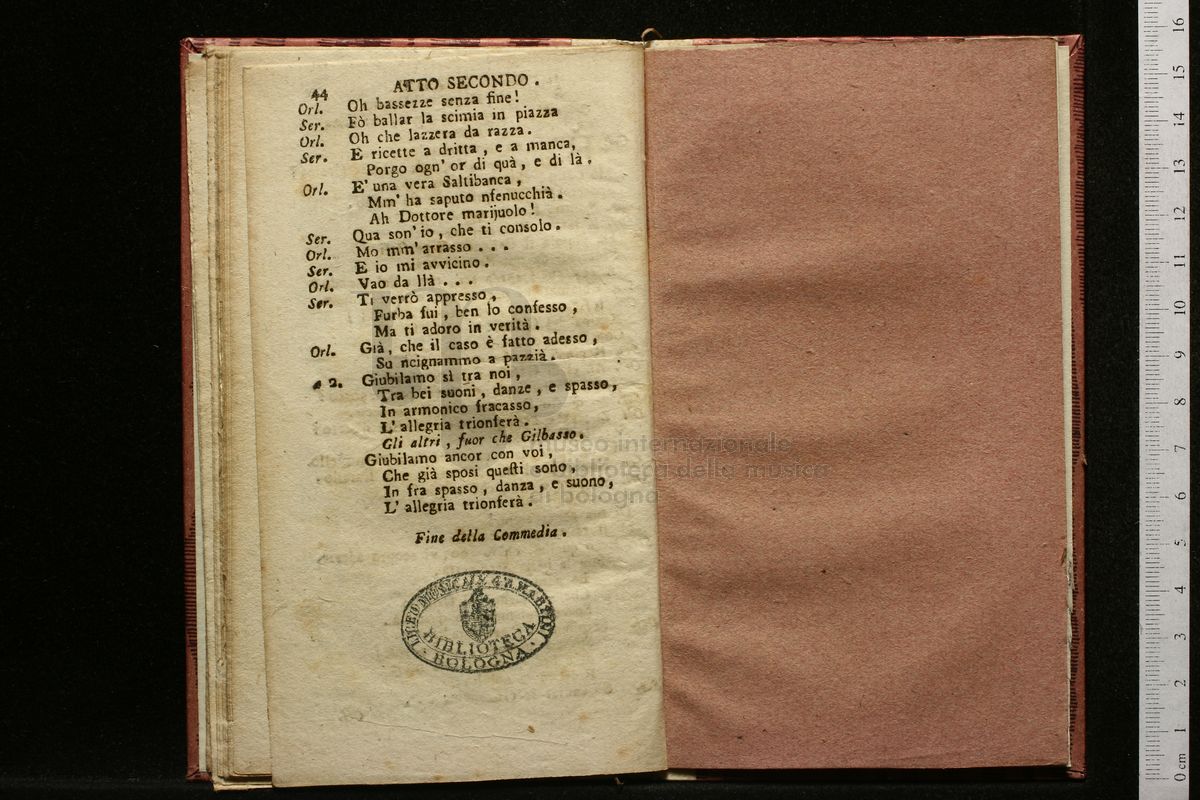 44 ATTO SECONDO .
Orl. Oh bassezze senza fine!
Ser. Fò ballar la scimia in piazza
Orl. Oh che lazzera da razza.
Ser. E ricette a dritta , e a manca,
Porgo ogn' or di quà, e di là .
Orl. E' una vera Saltibanca ,
Mm' ha saputo nfenucchià .
Ah Dottore marijuolo !
Ser. Qua son' io , che ti consolo .
Orl. Mo mm' arrasso . . .
Ser. E io mi avvicino .
Orl. Vao da llà . . .
Ser. Ti verrò appresso ,
Furba fui , ben lo confesso ,
Ma ti adoro in verità .
Orl. Già, che il caso è fatto adesso ,
Su ncignammo a pazzià .
a 2. Giubilamo sì tra noi ,
Tra bei suoni , danze , e spasso,
In armonico fracasso,
L' allegria trionferà .
Gli altri , fuor che Gilbasso.
Giubilamo ancor con voi ,
Che già sposi questi sono,
In fra spasso , danza , e suono,
L' allegria trionferà .
Fine della Commedia .
LICEO MUSICALE G. B. MARTINI
BIBLIOTECA
BOLOGNA
museo internazionale
e biblioteca della musica
di bologna
16
15
14
13
12
11
10
9
8
7
6
5
4
3
2
1
0 cm